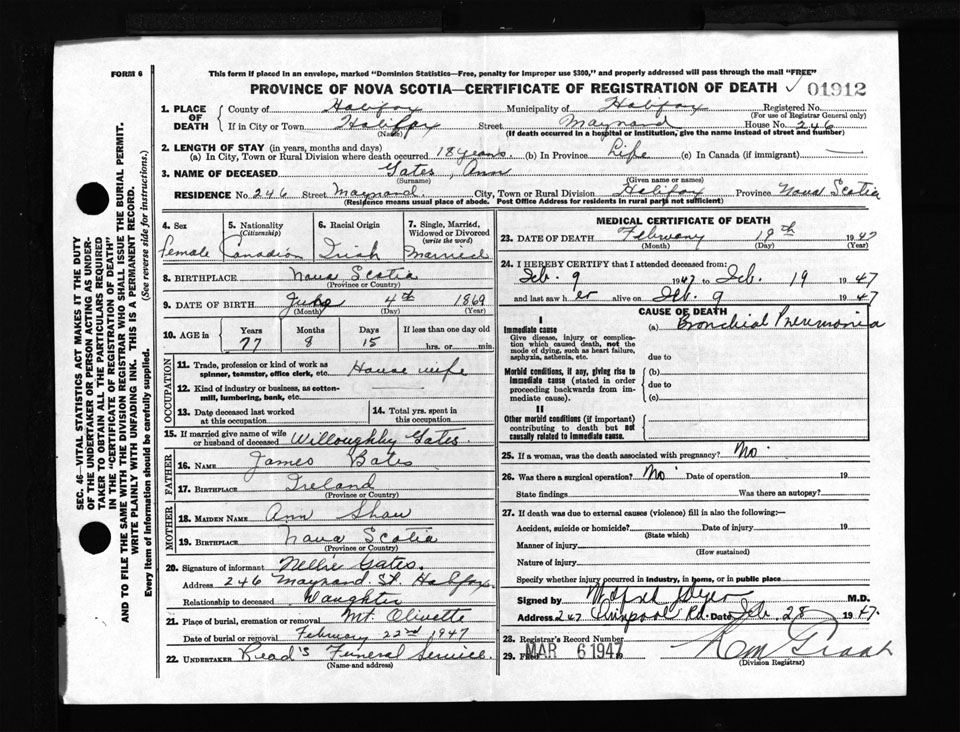 FORM 6
This form if placed in an envelope, marked "Dominion Statistics—Free, penalty for improper use $300," and properly addressed will pass through the mail "FREE"
PROVINCE OF NOVA SCOTIA—CERTIFICATE OF REGISTRATION OF DEATH 01912
1. PLACE OF DEATH County of Halifax Municipality of Halifax Registered No.
(For use of Registrar General only)
If in City or Town Halifax Street Maynard House No. 246
(Name) (If death occurred in a hospital or institution, give the name instead of street and number)
2. LENGTH OF STAY (in years, months and days)
(a) In City, Town or Rural Division where death occurred 18 years. (b) In Province Life (c) In Canada (if immigrant)
3. NAME OF DECEASED Gates, Ann
(Surname) (Given name or names)
RESIDENCE No. 246 Street Maynard City, Town or Rural Division Halifax Province Nova Scotia
(Residence means usual place of abode. Post Office Address for residents in rural parts not sufficient)
4. Sex 5. Nationality (Citizenship) 6. Racial Origin 7. Single, Married, Widowed or Divorced (write the word)
Female Canadian Irish Married
8. BIRTHPLACE Nova Scotia
(Province or Country)
9. DATE OF BIRTH 4th 1869
(Month) (Day) (Year)
10. AGE in Years Months Days If less than one day old
77 8 15 hrs. or min.
OCCUPATION
11. Trade, profession or kind of work as spinner, teamster, office clerk, etc. House wife
12. Kind of industry or business, as cotton-mill, lumbering, bank, etc.
13. Date deceased last worked at this occupation
14. Total yrs. spent in this occupation
15. If married give name of wife or husband of deceased Willoughby Gates.
FATHER
16. NAME James Bates
17. BIRTHPLACE Ireland
(Province or Country)
MOTHER
18. MAIDEN NAME Ann Shaw
19. BIRTHPLACE Nova Scotia
(Province or Country)
20. Signature of informant Nellie Gates.
Address 246 Maynard St. Halifax
Relationship to deceased Daughter
21. Place of burial, cremation or removal Mt. Olivette
Date of burial or removal February 22nd 1947
22. UNDERTAKER Read's Funeral Service.
(Name and address)
MEDICAL CERTIFICATE OF DEATH
23. DATE OF DEATH February 19th 1947
(Month) (Day) (Year)
24. I HEREBY CERTIFY that I attended deceased from:
Feb. 9 1947 to Feb. 19 1947
and last saw h er alive on Feb. 9 1947
CAUSE OF DEATH
I
Immediate cause (a) Bronchial Pneumonia
Give disease, injury or complication which caused death, not the mode of dying, such as heart failure, asphyxia, asthenia, etc.
due to
Morbid conditions, if any, giving rise to immediate cause (stated in order proceeding backwards from immediate cause).
(b)
due to
(c)
II
Other morbid conditions (if important) contributing to death but not causally related to immediate cause.
25. If a woman, was the death associated with pregnancy? No
26. Was there a surgical operation? No Date of operation 19
State findings Was there an autopsy?
27. If death was due to external causes (violence) fill in also the following:—
Accident, suicide or homicide? Date of injury 19
(State which)
Manner of injury
(How sustained)
Nature of injury
Specify whether injury occurred in industry, in home, or in public place
Signed by M.D.
Address 247 Rd. Date Feb. 28 1947.
28. Registrar's Record Number
29. Filed MAR 6 1947 19
(Division Registrar)
SEC. 46—VITAL STATISTICS ACT MAKES IT THE DUTY
OF THE UNDERTAKER OR PERSON ACTING AS UNDER-
TAKER TO OBTAIN ALL THE PARTICULARS REQUIRED
IN THE "CERTIFICATE OF REGISTRATION OF DEATH"
AND TO FILE THE SAME WITH THE DIVISION REGISTRAR WHO SHALL ISSUE THE BURIAL PERMIT.
WRITE PLAINLY WITH UNFADING INK. THIS IS A PERMANENT RECORD.
Every item of information should be carefully supplied. (See reverse side for instructions.)